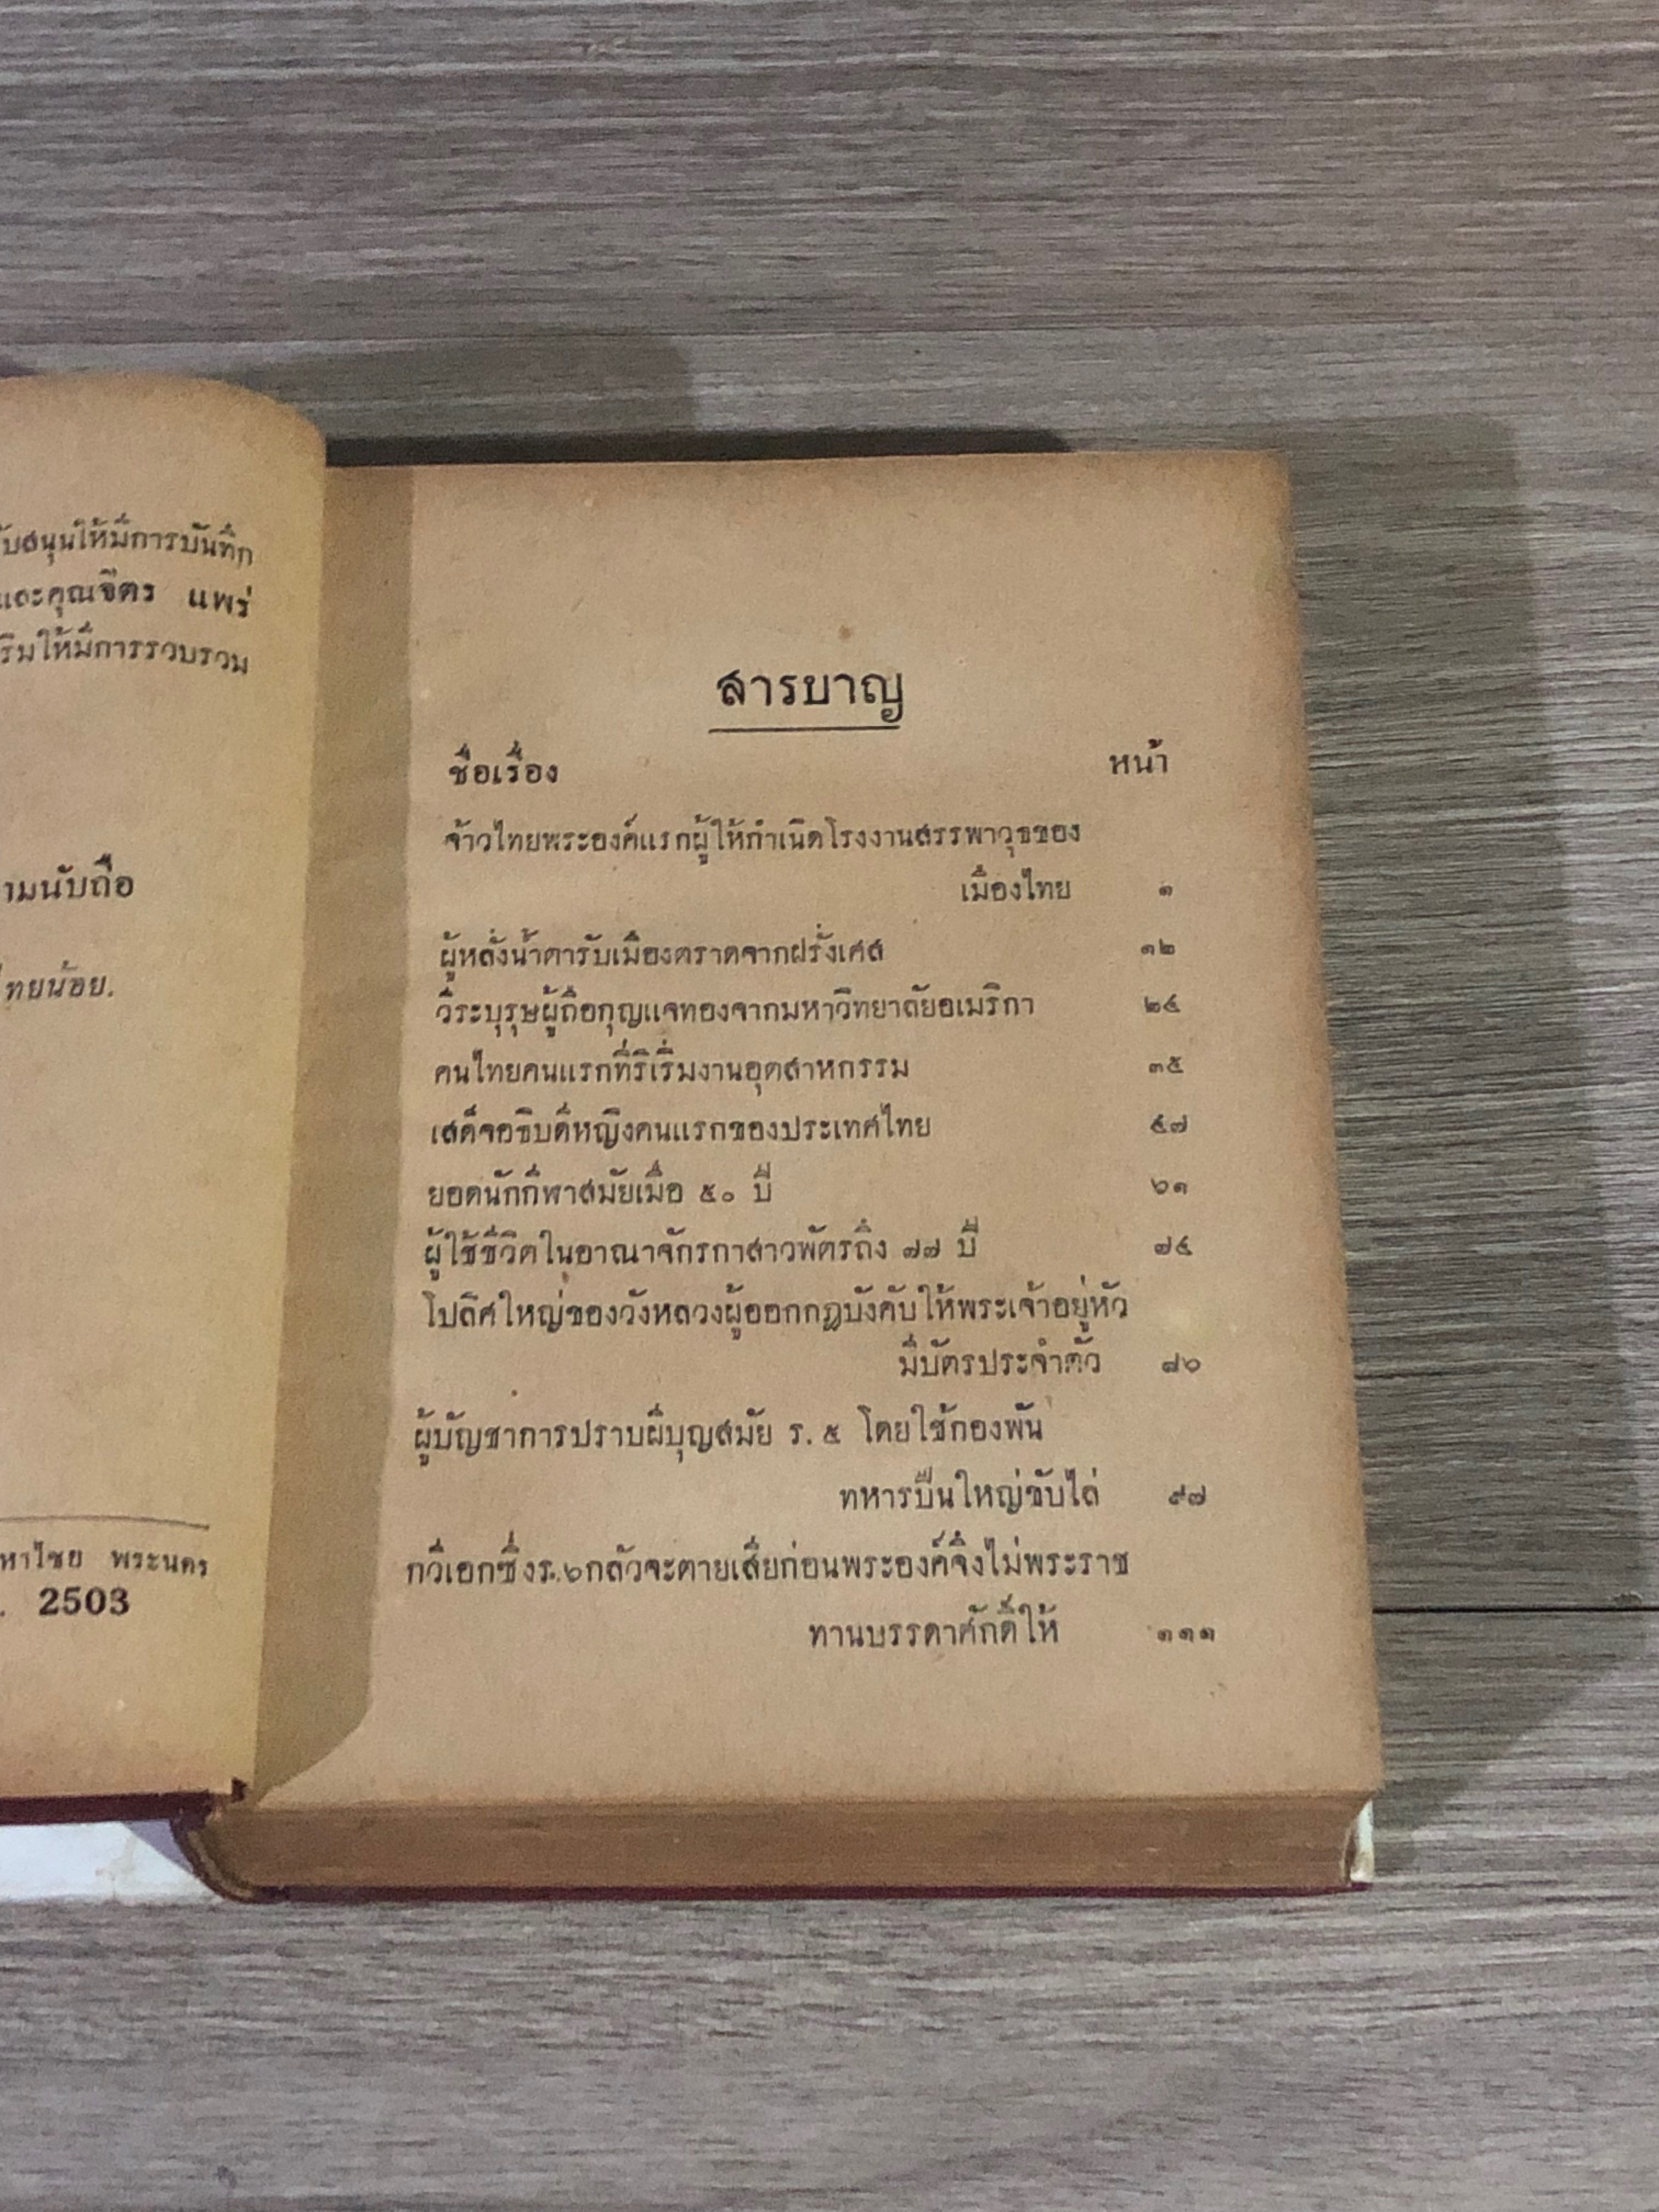 บสนุนให้มีการบันทึก
และคุณจิตร แพร่
ริมให้มีการรวบรวม
ามนับถือ
ไทยน้อย.
หาไชย พระนคร
. 2503
สารบาญ
ชื่อเรื่อง หน้า
จ้าวไทยพระองค์แรกผู้ให้กำเนิดโรงงานสรรพาวุธของ
เมืองไทย ๑
ผู้หลั่งน้ำตารับเมืองตราดจากฝรั่งเศส ๑๒
วีระบุรุษผู้ถือกุญแจทองจากมหาวิทยาลัยอเมริกา ๒๔
คนไทยคนแรกที่ริเริ่มงานอุตสาหกรรม ๓๕
เสด็จอธิบดีหญิงคนแรกของประเทศไทย ๔๗
ยอดนักกีฬาสมัยเมื่อ ๕๐ ปี ๖๑
ผู้ใช้ชีวิตในอาณาจักรกาสาวพัตรถึง ๗๗ ปี ๗๔
โปลิศใหญ่ของวังหลวงผู้ออกกฎบังคับให้พระเจ้าอยู่หัว
มีบัตรประจำตัว ๘๖
ผู้บัญชาการปราบผีบุญสมัย ร. ๕ โดยใช้กองพัน
ทหารปืนใหญ่ขับไล่ ๙๗
กวีเอกซึ่งร.๖กลัวจะตายเสียก่อนพระองค์จึงไม่พระราช
ทานบรรดาศักดิ์ให้ ๑๑๑